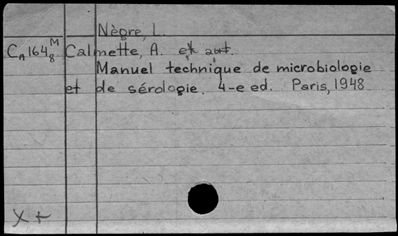 Nègre, L.
CA 164 M 8 Calmette, A. et aut.
Manuel technique de microbiologie
et de sérologie. 4-e ed. Paris, 1948
X +